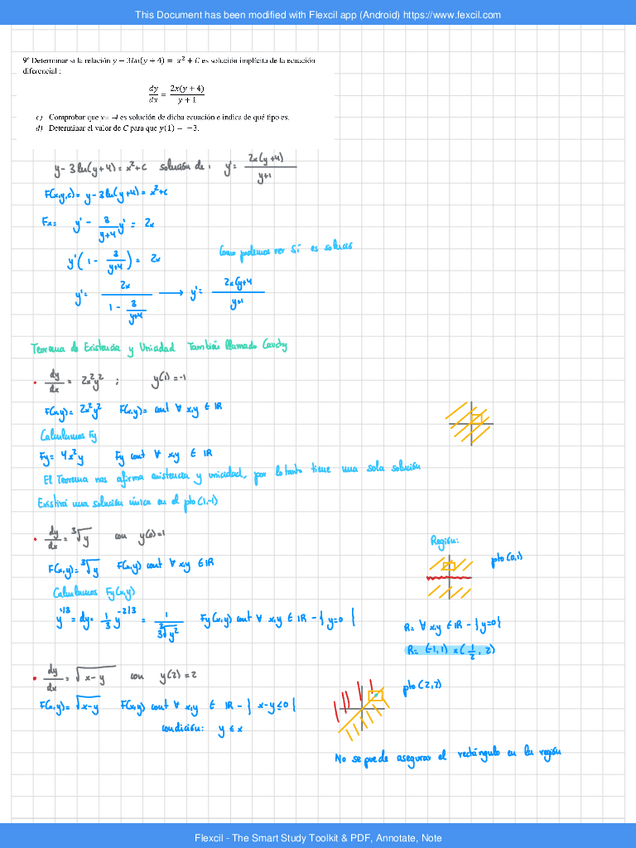 This Document has been modified with Flexcil app (Android) https://www.fexcil.com
9º Determinar si la relación y − 3ln(y + 4) = x² + C es solución implícita de la ecuación
diferencial :
dy/dx = 2x(y + 4)/(y + 1)
c) Comprobar que y= -4 es solución de dicha ecuación e indica de qué tipo es.
d) Determinar el valor de C para que y(1) = −3.
y - 3 ln(y+4) = x²+c solución de : y' = 2x(y+4)/(y+1)
F(x,y,c) = y - 3 ln(y+4) = x²+c
Fx= y' - 3/(y+4) y' = 2x
y'(1 - 3/(y+4)) = 2x
Como podemos ver Sí es solución
y' = 2x/(1 - 3/(y+4)) → y' = 2x(y+4)/(y+1)
Teorema de Existencia y Unicidad También llamado Cauchy
• dy/dx = 2x²y² ; y(1) = -1
F(x,y) = 2x²y² F(x,y) = cont ∀ x,y ∈ IR
Calculamos Fy
Fy = 4x²y Fy cont ∀ x,y ∈ IR
El Teorema nos afirma existencia y unicidad, por lo tanto tiene una sola solución
Existirá una solución única en el pto (1,-1)
• dy/dx = ³√y con y(0)=1
Región:
pto (0,1)
F(x,y) = ³√y F(x,y) cont ∀ x,y ∈ IR
Calculamos Fy(x,y)
y^1/3 = dy = 1/3 y^-2/3 = 1/(3 ³√y²) Fy(x,y) cont ∀ x,y ∈ IR - { y=0 }
R= ∀ x,y ∈ IR - { y=0 }
R= (-1,1) x (1/2, 2)
• dy/dx = √x-y con y(2) = 2
pto (2,2)
F(x,y) = √x-y F(x,y) cont ∀ x,y ∈ IR - { x-y≤0 }
condición: y ≤ x
No se puede asegurar el rectángulo en la región
Flexcil - The Smart Study Toolkit & PDF, Annotate, Note